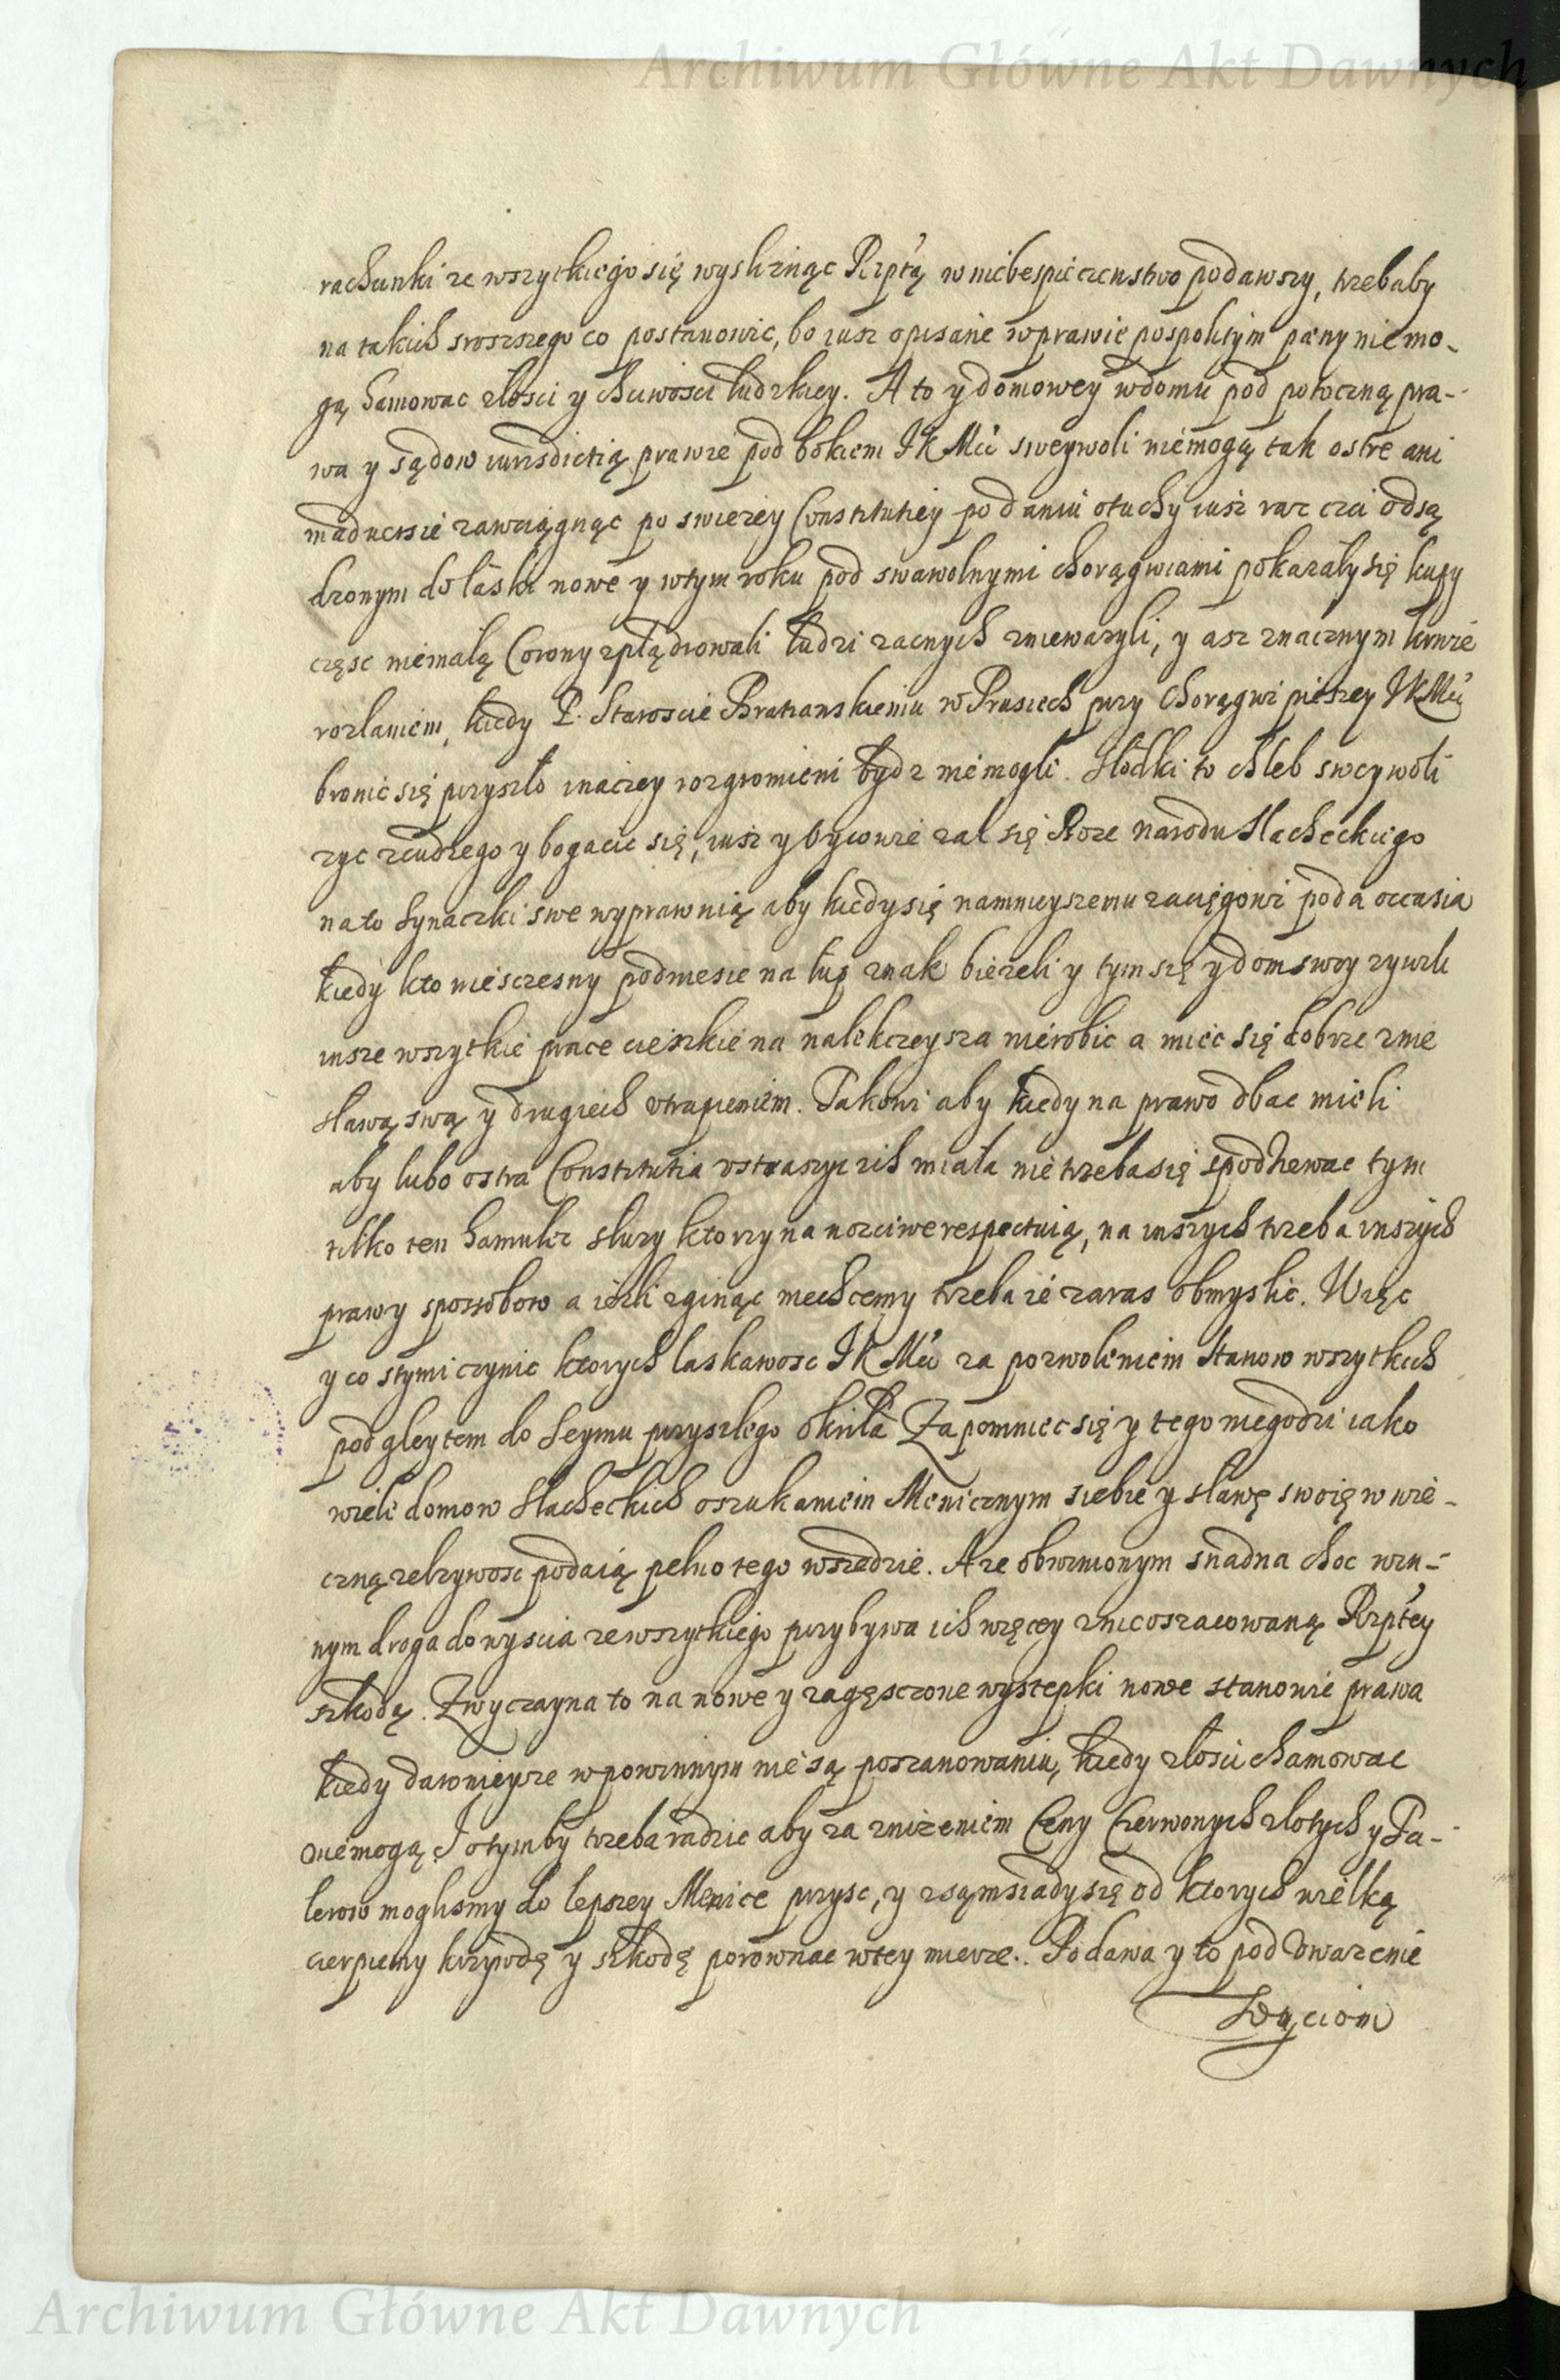 Archiwum Główne Akt Dawnych
rachunki ze wszytkiego się wysliznąc Rzptą w niebespieczenstwo podawszy, trzebaby
na takich sroszszego co postanowic, bo iusz opisane w prawie pospolitym pæny nie mo-
gą hamowac złosci y chciwosci ludzkiey. A to y domowey w domu pod potoczną pra-
wa y sądow iurisdictią prawie pod bokiem JKMci sweywoli niemogą tak ostre ani
zawciągnąc po swiezey Constitutiey podaniu otuchy iusz raz czci odsą
dzonym do łaski nowe y wtym roku pod swawolnymi chorągwiami pokazały się kupy
częsc niemałą Corony zplądrowali ludzi zacnych zniewazyli, y asz znacznym krwie
rozlaniem, kiedy P. Staroscie Bratianskiemu w Prusiech przy chorągwi pieszey JKMci
bronic się przyszło inaczey rozgromieni bydz niemogli. Słodki to chleb sweywoli
zyc zcudzego y bogacic się, iusz y oycowie zal się Boze narodu slacheckiego
na to synaczki swe wyprawuią aby kiedy się namnieyszemu zaciągowi poda occasia
kiedy kto niesczesny podniesie na łup znak biezeli y tym się y dom swoy zywili
insze wszytkie prace cieszkie na nalekczeysza nierobic a miec się dobrze znie
sławą swą y drugich utrapieniem. Takowi aby kiedy na prawo dbac mieli
aby lubo ostra Constitutia ustraszyc ich miała nie trzeba się spodziewac tym
tilko ten hamulec sluzy ktorzy na poczciwe respectuią, na inszych trzeba inszych
prawy sposobow a iesli zginąc niechcemy trzeba ie zaras obmyslic. Więc
y co stymi czynic ktorych laskawosc JKMci za pozwoleniem Stanow wszytkich
pod gleytem do Seymu przyszłego okriła Zapomniec się y tego niegodzi iako
wiele domow slacheckich oszukaniem Menicznym siebie y sławę swoię w wie-
czną zelzywosc podaią pełno tego wszedzie. A ze obwinionym snadna choc win-
nym droga do wyscia ze wszytkiego przybywa ich więcey z nieoszacowaną Rzptey
szkodą. Zwyczayna to na nowe y zagęsczone wystepki nowe stanowic prawa
kiedy dawnieysze w powinnym nie są poszanowaniu, kiedy złosci chamowac
niemogą. I o tymby trzeba radzic aby za znizeniem Ceny Czerwonych złotych y Ta-
lerow moglismy do lepszey Menice przysc, y z sąmsiady się od ktorych wielką
cierpiemy krzywdę y szkodę porownac w tey mierze. Podawa y to pod uwazenie
Archiwum Główne Akt Dawnych